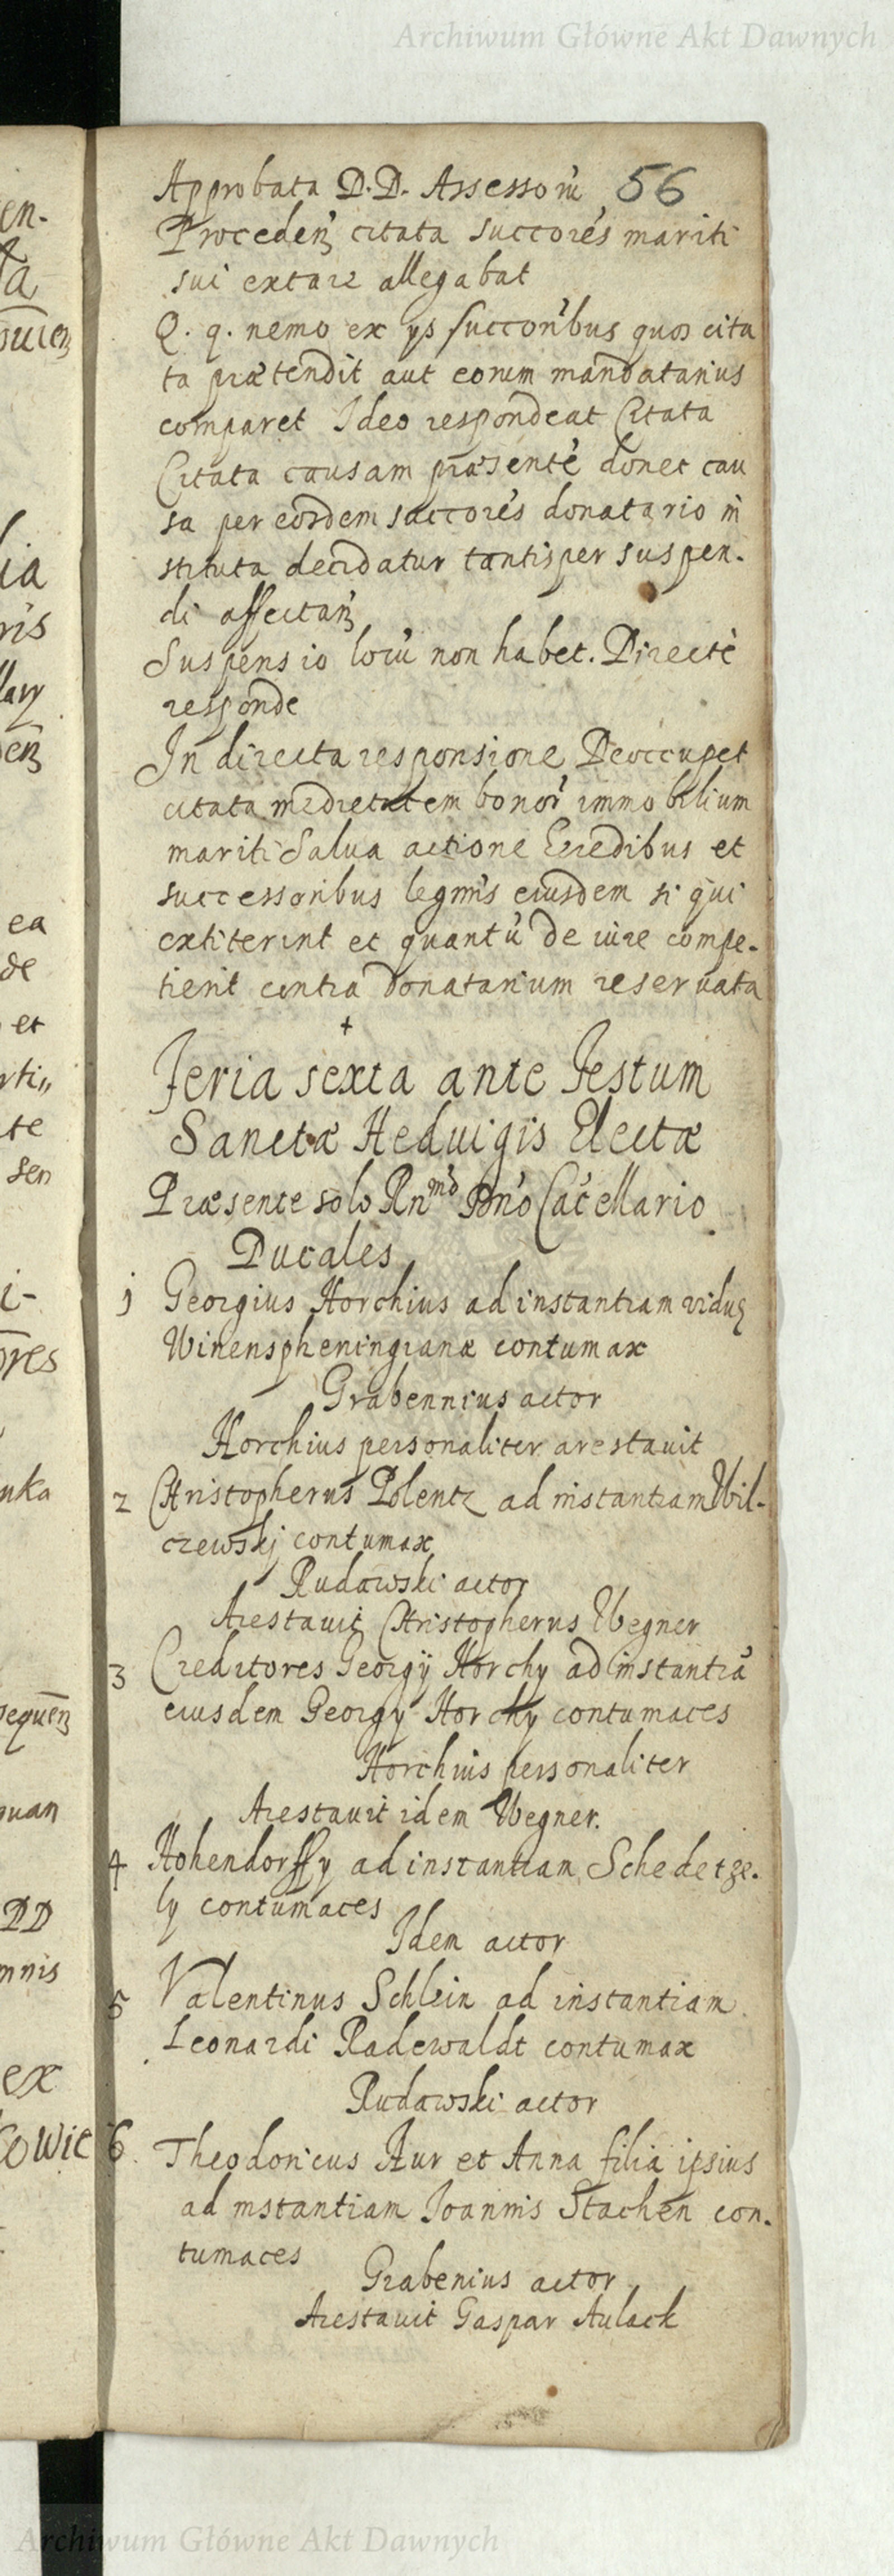 Archiwum Główne Akt Dawnych
Approbata D.D. Assessorũ 56
Procedeñ citata succores mariti
sui extare allegabat
Q. q. nemo ex ys succoribus quos cita
ta prætendit aut eorum mandatarius
comparet Ideo respondeat Citata
Citata causam præsente donec cau
sa per eosdem succores donatario in
stituta decidatur tantisper suspen-
di affectañ
Suspensio locũ non habet. Directè
responde
In directa responsione Deoccupet
citata medietatem bonor immobilium
mariti Salua actione Eredibus et
successoribus legmis eiusdem si qui
extiterint et quantũ de iure compe-
tierit contra donatarium reseruata
+
Feria sexta ante Festum
Sanctæ Heduigis Electæ
Præsente solo Rnmo Dno Cacellario
Ducales
1 Georgius Horchius ad instantiam viduę
Winenspheningianæ contumax
Grabennius actor
Horchius personaliter arestauit
2 Christopherus Polentz ad instantiam Wil-
czewskj contumax
Rudawski actor
Arestauit Christopherus Wegner
3 Creditores Georgÿ Horchy ad instantiã
eiusdem Georgy Horchy contumaces
Horchius personaliter
Arestauit idem Wegner.
4 Hohendorffy ad instantiam Schedetze-
ly contumaces
Idem actor
5 Valentinus Schlein ad instantiam
Leonardi Radewaldt contumax
Rudawski actor
6. Theodoricus Aur et Anna filia ipsius
ad instantiam Joannis Stachen con-
tumaces
Grabenius actor
Arestauit Gaspar Aulack
Archiwum Główne Akt Dawnych